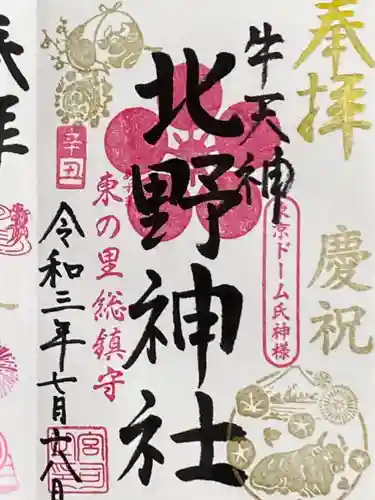 奉拝
慶祝
牛天神
東京ドーム氏神様
北野神社
辛丑
東の里総鎮守
令和三年七月廿八日